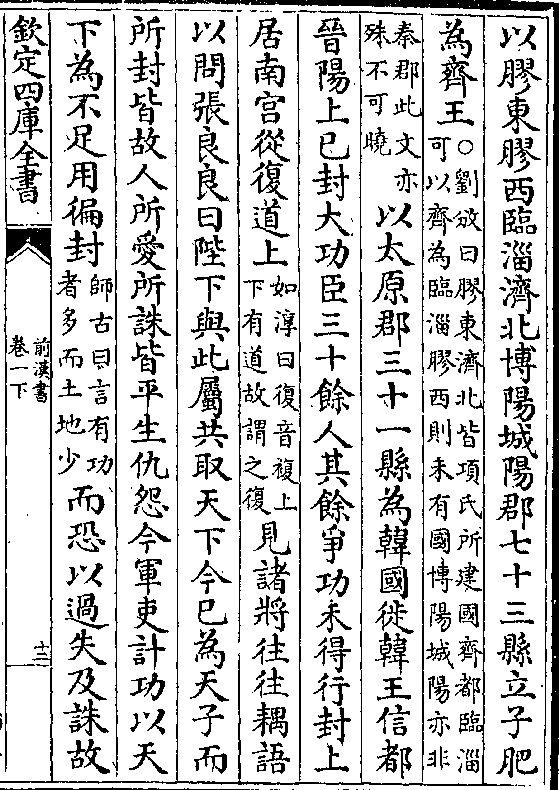 以膠東膠西臨淄濟北博陽城陽郡七十三縣立子肥
為齊王○劉攽曰膠東濟北皆項氏所建國齊都臨淄可以齊為臨淄膠西則未有國博陽城陽亦非
秦郡此文亦殊不可曉以太原郡三十一縣為韓國徙韓王信都
晉陽上已封大功臣三十餘人其餘爭功未得行封上
居南宫從復道上如淳曰復音複上下有道故謂之復見諸將往往耦語
以問張良良曰陛下與此屬共取天下今已為天子而
所封皆故人所愛所誅皆平生仇怨今軍吏計功以天
下為不足用徧封師古曰言有功者多而土地少而恐以過失及誅故
欽定四庫全書
前漢書
卷一下
十二